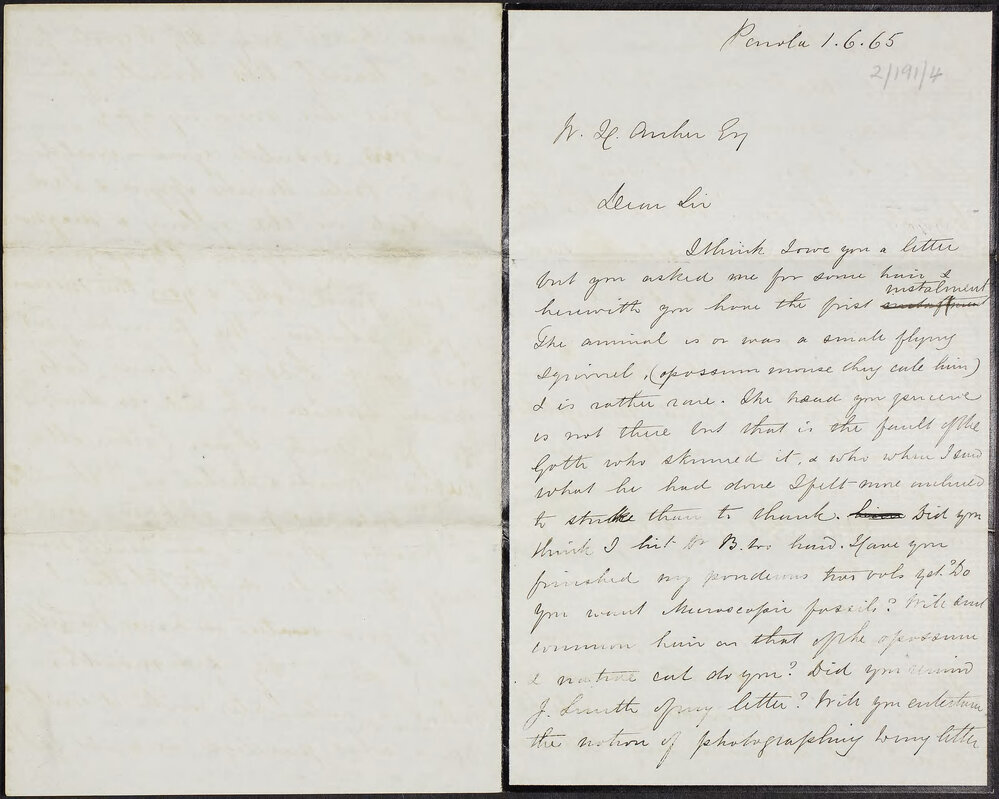 Penola 1.6.65
2/191/4
W. H. Archer Esq
Dear Sir
I think I owe you a letter
but you asked me for some hair &
instalment
herewith you have the first
The animal is or was a small flying
squirrel, (opossum mouse they call him)
& is rather rare. The head you perceive
is not there but that is the fault of the
Goth who skinned it, & who when I saw
what he had done I felt more inclined
to strike than to thank. Did you
think I hit Dr B. too hard. Have you
finished my ponderous two vols yet? Do
you want Microscopic fossils?
common hair as that of the opossum
& native cat do you? Did you remind
J. Smith of my letter? Will you entertain
the notion of photographing to my letter